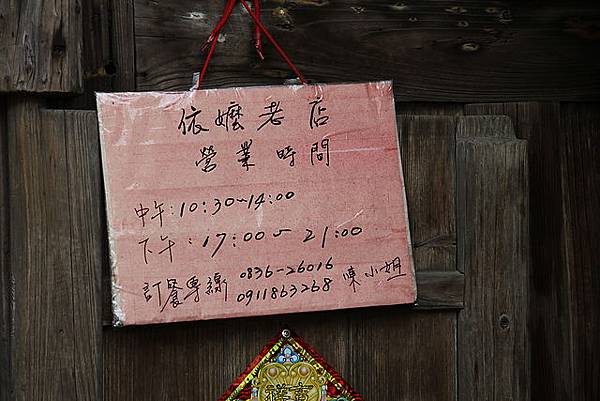 依嬤老店
營業時間
中午:10:30~14:00
下午:17:00~21:00
訂餐專線 0836-26016
0911863268 陳小姐